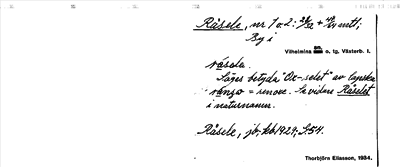 Råsele, nr 1 o. 2: 21/32 + 43/64 mtl;
By i
Vilhelmina sn o. tg. Västerb. l.
råsela.
Säges betyda "Ox-selet" av lapska
= renoxe. Se vidare Råselet
i naturnamn.
Råsele, jb, kb 1929, S. 54.
Thorbjörn Eliasson, 1934.